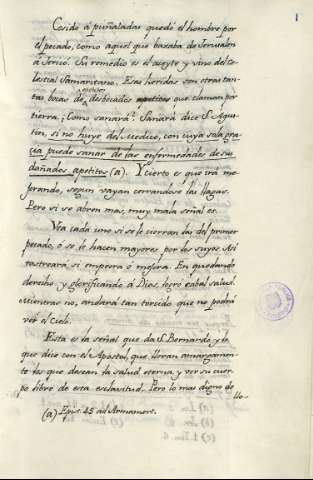 1
Cosido á puñaladas quedó el hombre por
el pecado, como aquel que baxaba de Jerusalén
á Jericó. Su remedio es el azeyte y vino del Ce-
lestial Samaritano. Esas heridas son otras tan-
tas bocas de apetitos desbocados apetitos que claman por
tierra. ¿Como sanará? Sanará dice S. Agus-
tin, si no huye del medico, con cuya sola gra-
cia puede sanar de las enfermedades de sus
dañados apetitos (a). Y cierto es que irá me-
jorando, segun vayan cerrandose las llagas.
Pero si se abren mas, muy mala señal es.
Vea cada uno si se le cierran las del primer
pecado, ó se le hacen mayores por los suyos. Asi
rastreará si empeora ó mejora. En quedando
derecho y glorificando á Dios, logró cabal salud.
Mientras no, andará tan torcido que no podrá
ver el cielo.
Esta es la señal que da S. Bernardo y lo
que dice con el Apostol, que lloran amargamen-
te los que desean la salud eterna y ver su cuer-
po libre de esta esclavitud. Pero lo mas digno de
llo-
(a) Epist. 45 ad Armament.